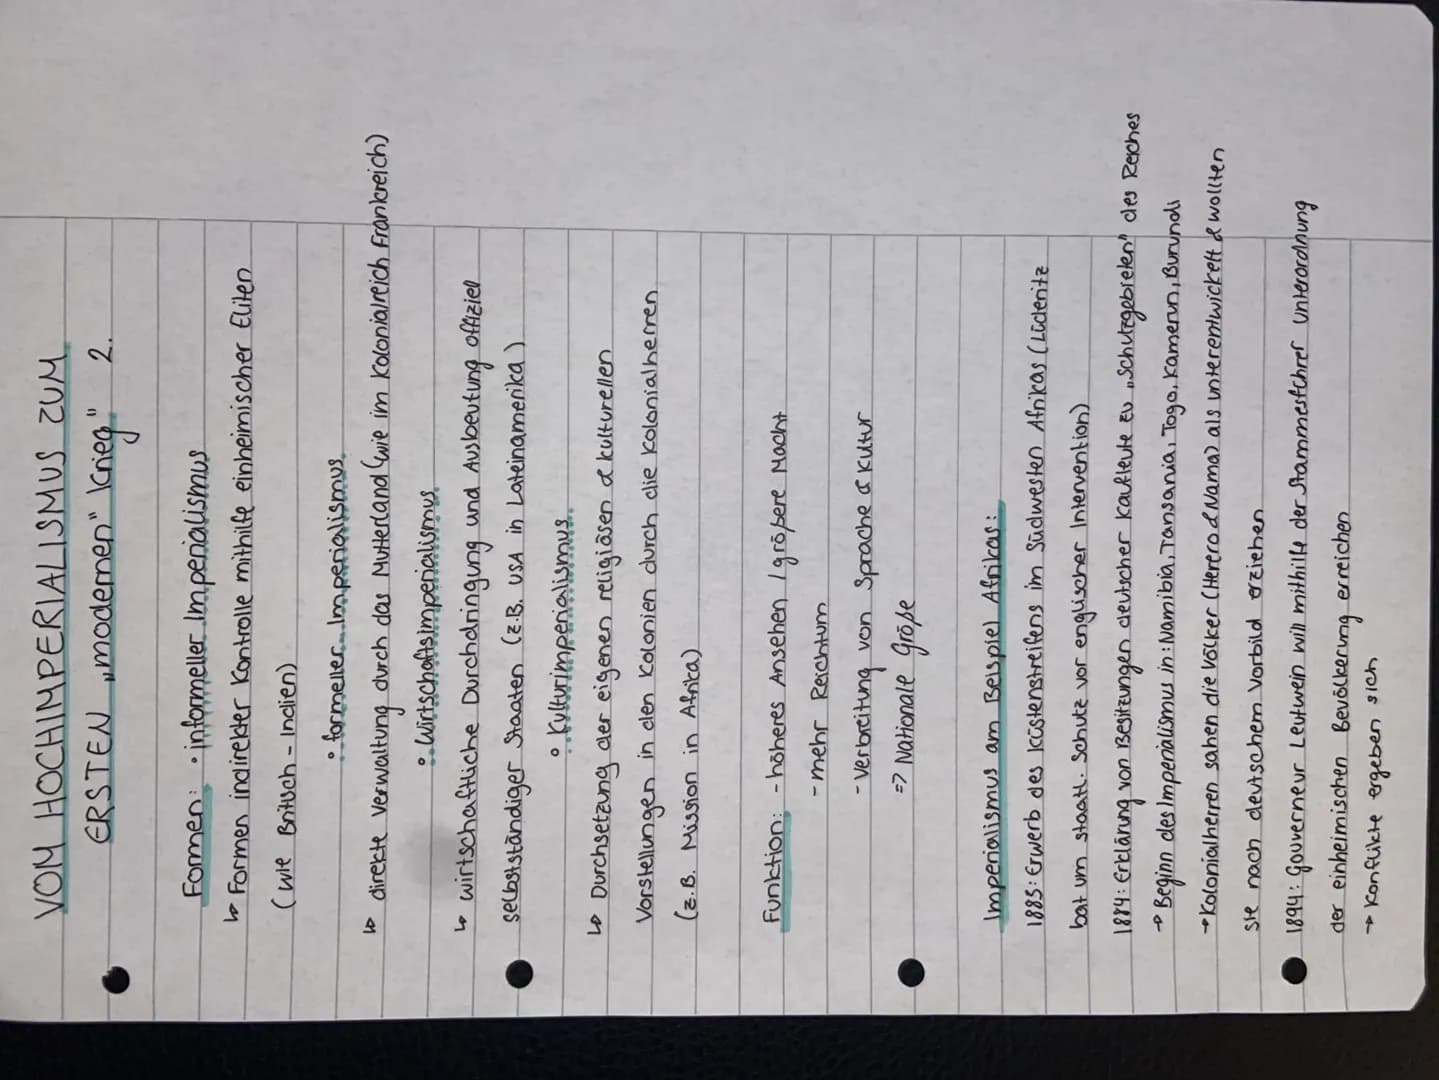 VOM HOCHIMPERIALISMUS ZUM
ERSTEN „modernen" Krieg" 2.
Formen: • informeller Imperialismus
↳ Formen indirekter Kontrolle mithilfe einheimischer Eliten
(wie Britisch-Indien)
• formeller Imperialismus
↳ direkte Verwaltung durch das Mutterland (wie im Kolonialreich Frankreich)
• Wirtschaftsimperialismus
↳ wirtschaftliche Durchdringung und Ausbeutung offiziel
selbstständiger Staaten (z.B. USA in Lateinamerika)
• Kulturimperialismus
↳ Durchsetzung der eigenen religiösen & kulturellen
Vorstellungen in den Kolonien durch die Kolonialherren
(z.B. Mission in Afrika)
Funktion: - höheres Ansehen / größere Macht
- mehr Reichtum
- Verbreitung von Sprache & Kultur
=> Nationale Größe
Imperialismus am Beispiel Afrikas:
1883: Erwerb des Küstenstreifens im Südwesten Afrikas (Lüderitz
bat um staatl. Schutz vor englischer Intervention)
1884: Erklärung von Besitzungen deutscher Kaufleute zu „Schutzgebieten" des Reiches
→ Beginn des Imperialismus in: Namibia, Tansania, Togo, Kamerun, Burundi
→ Kolonialherren sahen die Völker (Herero & Nama) als unterentwickelt & wollten
sie nach deutschem Vorbild erziehen
1894: Gouverneur Leutwein will mithilfe der Stammesführer Unterordnung
der einheimischen Bevölkerung erreichen
→ Konflikte ergeben sich